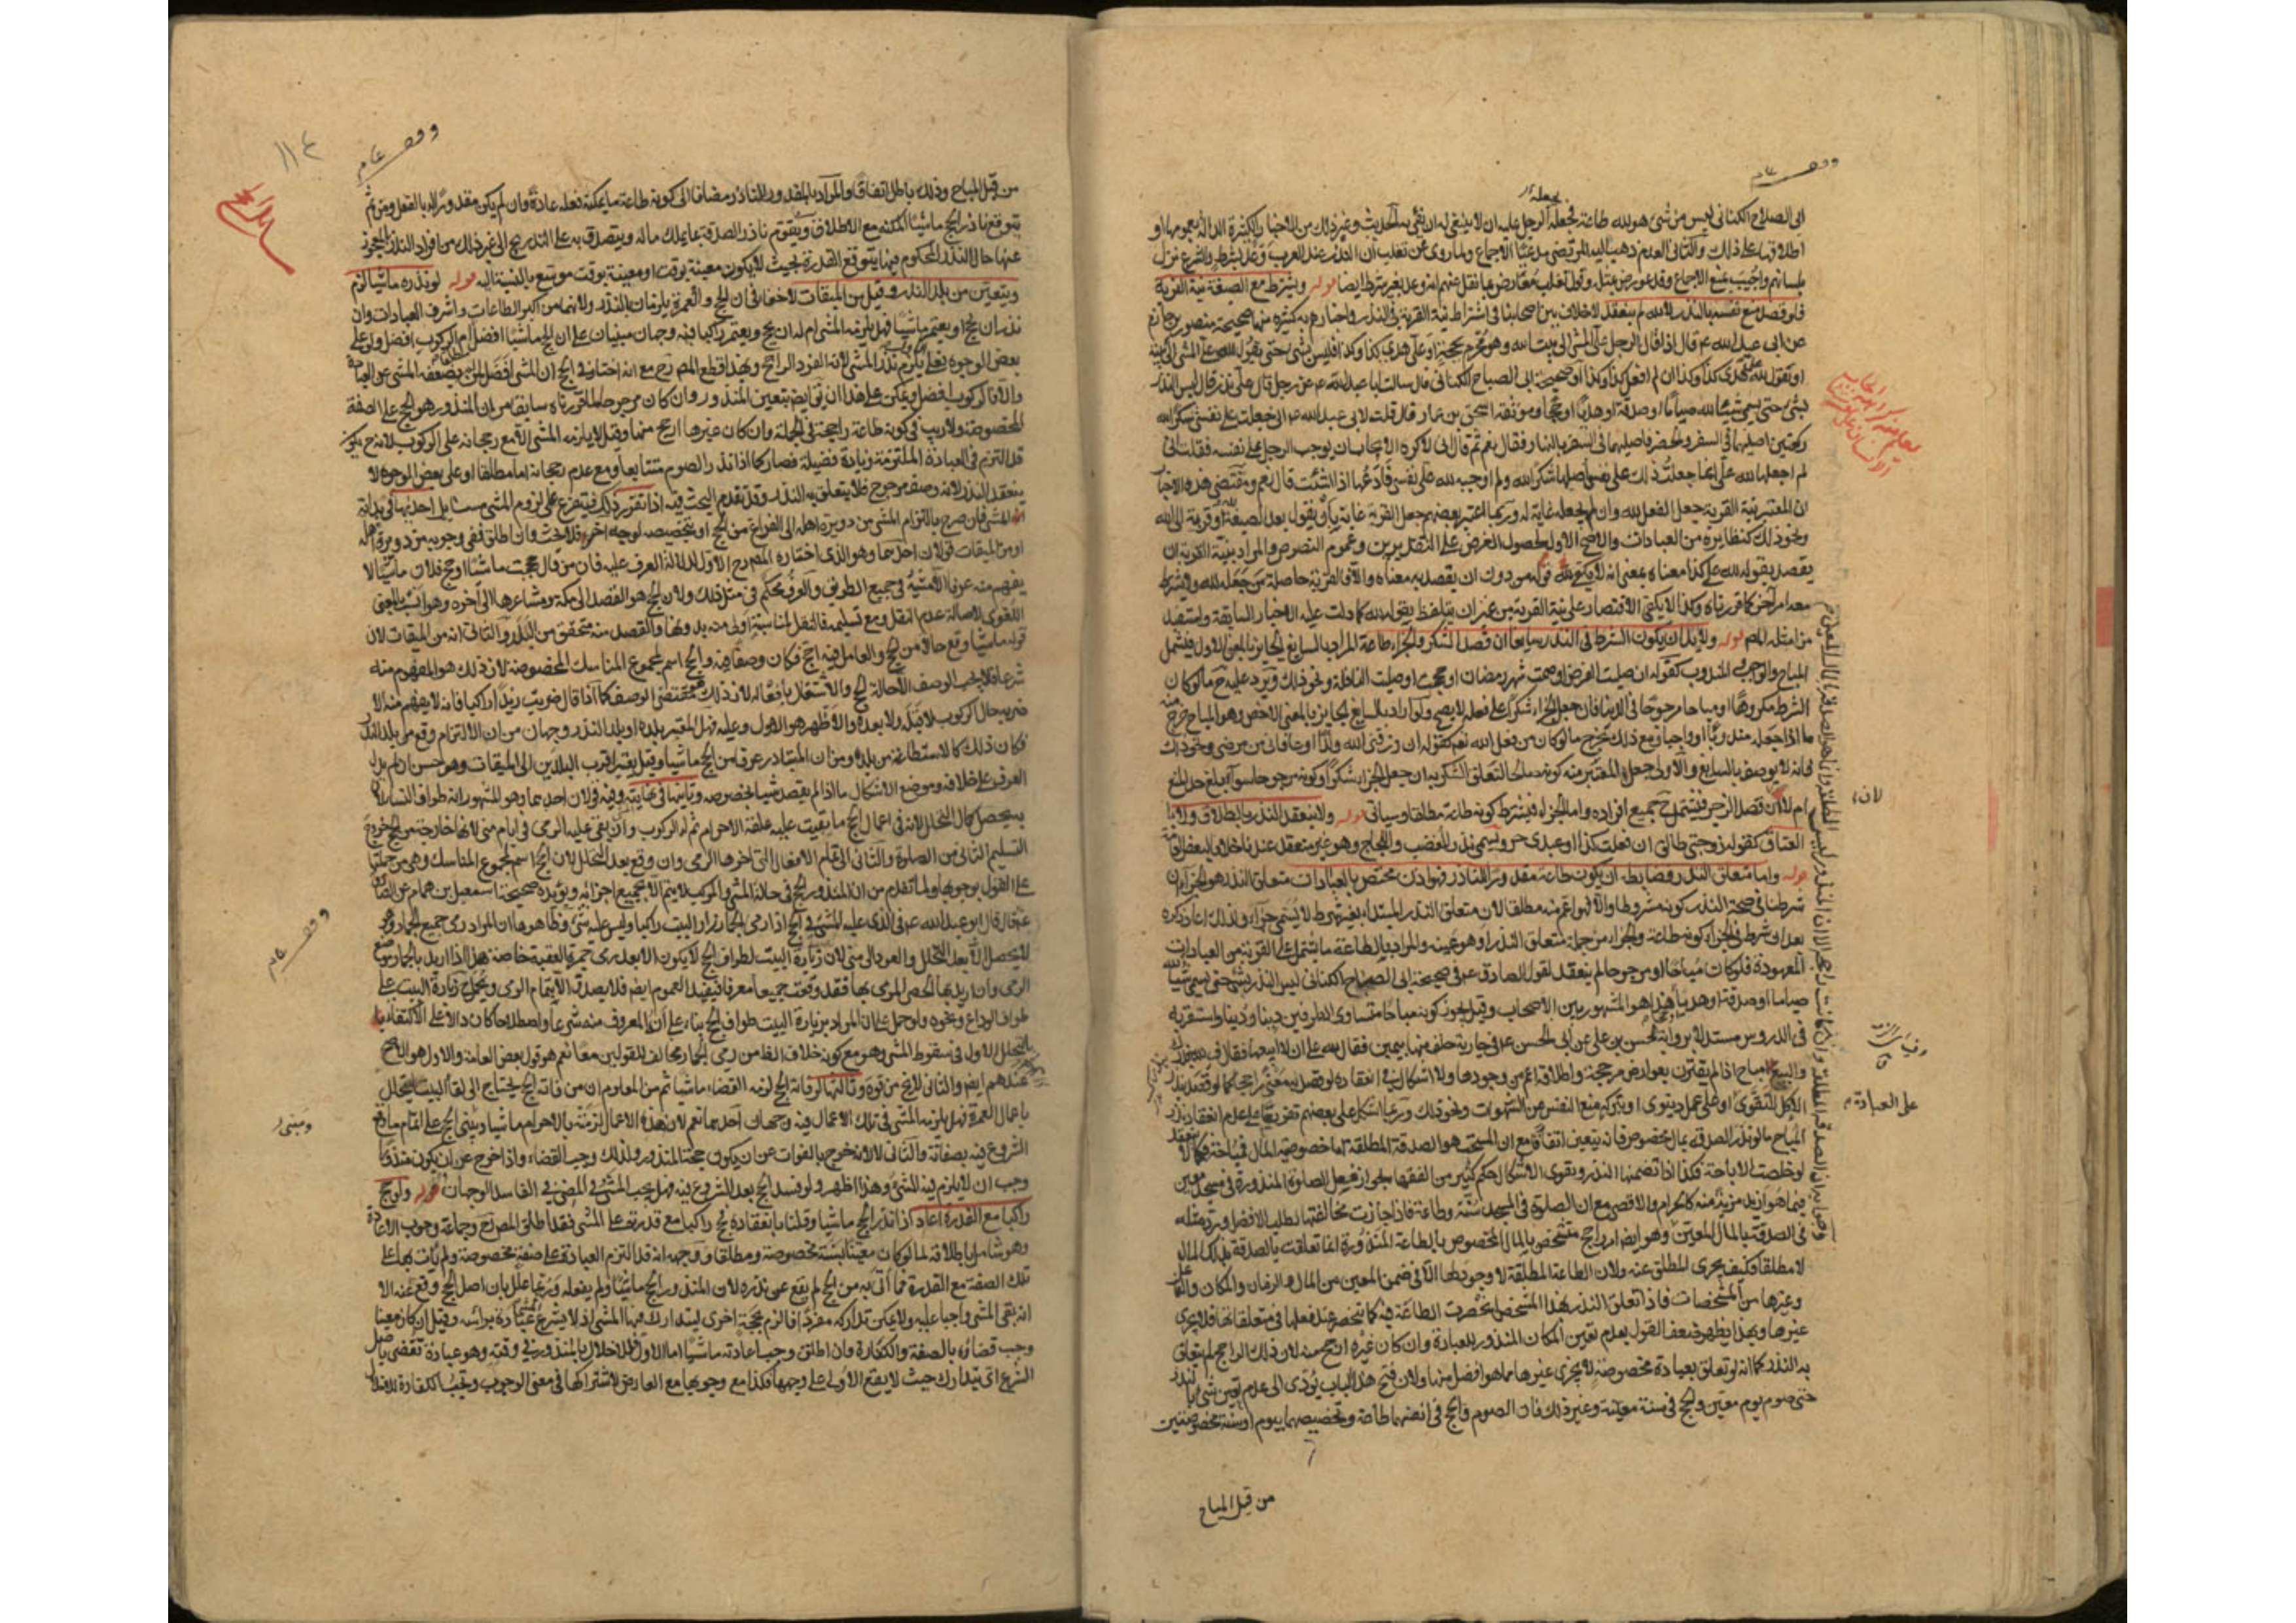 وقف عام
ابى الصلاح الكنانى ليس من شئ هو لله طاعة فجعله الرجل عليه ان لا ينبغى له ان يفى به الحديث وغير ذلك من الاخبار الكثيرة الدالة بعمومها او
اطلاقها على ذلك والثانى العدم ذهب اليه المرتضى مدعيا الاجماع ولما روى عن تغلب ان النذر عند العرب وعد بشرط والشرع نزل
بلسانهم واجيب بمنع الاجماع وقد عورض بمثله وقول تغلب معارض بما نقل عنهم انه وعد بغير شرط ايضا قوله ويشترط مع الصيغة نية القربة
فلو قصد منع نفسه بالنذر لا لله لم ينعقد لا خلاف بين اصحابنا فى اشتراط نية القربة فى النذر واخبارهم به كثيرة منها صحيحة منصور بن حازم
عن ابى عبد الله ع قال اذا قال الرجل على المشى الى بيت الله وهو محرم بحجة او على هدى كذا وكذا فليس بشئ حتى يقول لله على المشى الى بيته
او يقول لله على هدى كذا وكذا ان لم افعل كذا وكذا وصحيحة ابى الصباح الكنانى قال سالت ابا عبد الله ع عن رجل قال على نذر قال ليس النذر
بشئ حتى يسمى شيئا لله صياما او صدقة او هديا او حجا وموثقة اسحق بن عمار قال قلت لابى عبد الله ع انى جعلت على نفسى شكرا لله
ركعتين اصليهما فى السفر والحضر فاصليهما فى السفر بالنهار فقال نعم ثم قال انى لاكره الايجاب ان يوجب الرجل على نفسه فقلت انى
لم اجعلها لله على انما جعلت ذلك على نفسى اصليها شكرا لله ولم اوجبه لله على نفسى فادعها اذا شئت قال نعم ومقتضى هذه الاخبار
ان المعتبر بنية القربة جعل الفعل لله وان لم يجعله غاية له وربما اعتبر بعضهم جعل القربة غاية بان يقول بعد الصيغة لله او قربة الى الله
ونحو ذلك كنظايره من العبادات والاصح الاول لحصول الغرض على التقديرين وعموم النصوص والمراد بنية القربة ان
يقصد بقوله لله على كذا معناه بمعنى انه لا يكفى قوله من دون ان يقصد به معناه والا فالقربة حاصلة من جعله لله ولا يشترط
معه امر اخر كما قررناه وكذا لا يكفى الاقتصار على نية القربة من غير ان يتلفظ بقوله لله كما دلت عليه الاخبار السابقة واستفيد
من امثله المص قوله ولا بد ان يكون الشرط فى النذر سايغا ان قصد الشكر والجزاء طاعة المراد بالسايغ الجايز بالمعنى الاول فيشمل
المباح والواجب والمندوب كقوله ان صليت الفرض او صمت شهر رمضان او حججت او صليت النافلة ونحو ذلك ويرد عليه ح ما لو كان
الشرط مكروها او مباحا مرجوحا فى الدنيا فان جعل الجزاء شكرا على فعله لا يصح ولو اراد بالسايغ الجايز بالمعنى الاخص وهو المباح خرج
ما اذا جعله مندوبا او واجبا ومع ذلك يخرج ما لو كان من فعل الله نعم كقوله ان رزقنى الله ولدا او عافانى من مرضى ونحو ذلك
فانه لا يوصف بالسايغ والاولى جعل المعتبر منه كونه صالحا لتعلق الشكر به ان جعل الجزاء شكرا وكونه مرجوحا سواء بلغ حد المنع
ام لا ان قصد الزجر فيشتمل ح جميع افراده واما الجزاء فيشترط كونه طاعة مطلقا وسياتى قوله ولا ينعقد النذر بالطلاق ولا بالعتاق
العتاق كقوله زوجتى طالق ان فعلت كذا او عبدى حر ويسمى نذر الغضب واللجاج وهو غير منعقد عندنا خلافا لبعض العامة
قوله واما متعلق النذر فضابطه ان يكون طاعة مقدورا للناذر فهو اذن مختص بالعبادات متعلق النذر هو الجزاء ان
شرطنا فى صحة النذر كونه مشروطا والا فهو اعم منه مطلقا لان متعلق النذر المبتداء بغير شرط لا يسمى جزاء ولذلك اعاد ذكره
بعد او شرط فى الجزاء كونه طاعة والجزاء من جملة متعلق النذر او هو عينه والمراد بالطاعة ما يشتمل على القربة من العبادات
المعهودة فلو كان مباحا او مرجوحا لم ينعقد لقول الصادق ع فى صحيحة ابى الصباح الكنانى ليس النذر بشئ حتى يسمى شيئا لله
صياما او صدقة او هديا هذا هو المشهور بين الاصحاب وقيل يجوز كونه مباحا متساوى الطرفين دينا ودنيا واستقربه
فى الدروس مستدلا برواية الحسن بن على عن ابى الحسن ع فى جارية حلف منها بيمين فقال لله على ان لا ابيعها فقال ف لله بنذرك
والبيع مباح اذا لم يقترن بعوارض مرجحة واطلاقه اعم من وجودها ولا اشكال فى انعقاده لو قصد به معنى راجحا كما لو قصد بنذر
الاكل التقوى او على عمل دنيوى او بتركه منع النفس من الشهوات ونحو ذلك وربما اشكل على بعضهم تفريعا على عدم انعقاد نذر
المباح ما لو نذر الصدقة بمال مخصوص فانه يتعين اتفاقا مع ان المستحب هو الصدقة المطلقة اما خصوصية المال فمباحة فكما لا ينعقد
لو خلصت الاباحة فكذا اذا تضمنها النذر ويقوى الاشكال حكم كثير من الفقهاء بجواز فعل الصلوة المنذورة فى مسجد معين
فيما هو ازيد مزية منه كالحرام والاقصى مع ان الصلوة فى المسجد سنة وطاعة فاذا جازت مخالفتها لطلب الافضل ورد مثله
فى الصدقة بالمال المعين وهو ايضا راجح متشخص بالمال المخصوص بالطاعة المنذورة انما تعلقت بالصدقة بذلك المال
لا مطلقا فكيف يجزى المطلق عنه ولان الطاعة المطلقة لا وجود لها الا فى ضمن المعين من المال والزمان والمكان والفاعل
وغيرها من المشخصات فاذا تعلق النذر بهذا المشخص انحصرت الطاعة فيه كما ينحصر عند فعلها فى متعلقاتها فلا يجزى
غيرها وبهذا يظهر ضعف القول بعدم تعين المكان المنذور للعبادة وان كان غيره ارجح منه لان ذلك الراجح لم يتعلق
به النذر كما انه لو تعلق بعبادة مخصوصة لا يجزى غيرها مما هو افضل منها ولان فتح هذا الباب يؤدى الى عدم تعين شئ بالنذر
حتى صوم يوم معين والحج فى سنة معينة وغير ذلك فان الصوم والحج فى انفسهما طاعة وتخصيصهما بيوم او سنة مخصوصتين
من قبل المباح
لان
على العبادة
وقف عام
١١٤
من قبل المباح وذلك باطل اتفاقا والمراد بالمقدور للناذر مضافا الى كونه طاعة ما يمكنه فعله عادة وان لم يكن مقدورا له بالفعل ومن ثم
يتوقع ناذر الحج ماشيا المكنة مع الاطلاق ويقوم ناذر الصدقة بما يملك ماله ويتصدق به على التدريج الى غير ذلك من افراد النذر المعجوز
عنها حال النذر المحكوم فيها بتوقع القدرة بحيث لا يكون معينة بوقت او معينة بوقت موسع بالنسبة اليه قوله لو نذره ماشيا لزم
ويتعين من بلد النذر وقيل من الميقات لا خفاء فى ان الحج والعمرة يلزمان بالنذر ولانهما من اكبر الطاعات واشرف العبادات وان
نذر ان يحج او يعتمر ماشيا فهل يلزمه المشى ام له ان يحج ويعتمر راكبا فيه وجهان مبنيان على ان الحج ماشيا افضل ام الركوب افضل ولو على
بعض الوجوه فعلى الاول يلزم نذر المشى لانه الفرد الراجح وبهذا قطع المص رح مع انه اختار فى الحج ان المشى افضل لمن لم يضعفه المشى عن العبادة
والا فالركوب افضل ويمكن على هذا ان يقى ايضا بتعين المنذور وان كان مرجوحا لما قررناه سابقا من ان المنذور هو الحج على الصفة
المخصوصة ولا ريب فى كونه طاعة راجحة فى الجملة وان كان غيرها ارجح منها وقيل لا يلزمه المشى الا مع رجحانه على الركوب لانه ح يكون
قد التزم فى العبادة الملتزمة زيادة فضيلة فصار كما اذا نذر الصوم متتابعا ومع عدم رجحانه اما مطلقا او على بعض الوجوه لا
ينعقد النذر لانه وصف مرجوح فلا يتعلق به النذر وقد تقدم البحث فيه اذا تقرر ذلك فيتفرع على لزوم المشى مسائل احدها فى بداية
المشى فان صرح بالتزام المشى من دويرة اهله الى الفراغ من الحج او بتخصيصه لوجه اخر فلا بحث وان اطلق ففى وجوبه من دويرة اهله
او من الميقات قولان احدهما وهو الذى اختاره المص رح الاول لدلالة العرف عليه فان من قال حججت ماشيا او حج فلان ماشيا لا
يفهم منه عرفا الا مشيه فى جميع الطريق والعرف محكم فى مثل ذلك ولان الحج هو القصد الى مكة ومشاعرها الى اخره وهو انسب بالمعنى
اللغوى لاصالة عدم النقل ومع تسليمه فالنقل لمناسبة اولى منه بدونها والقصد منه متحقق من البلد والثانى انه من الميقات لان
قوله ماشيا وقع حالا من الحج والعامل فيه احج فكان وصفا فيه والحج اسم لمجموع المناسك المخصوصة لان ذلك هو المفهوم منه
شرعا فلا يجب الوصف الا حالة الحج والاشتغال بافعاله لان ذلك هو مقتضى الوصف كما اذا قال ضربت زيدا راكبا فانه لا يفهم منه الا
ضربه حال الركوب لا قبله ولا بعده والاظهر هو الاول وعليه فهل المعتبر بلده او بلد النذر وجهان من ان الالتزام وقع من بلد النذر
فكان ذلك كالاستطاعة من بلده ومن ان المتبادر عرفا من الحج ماشيا وقيل يعتبر اقرب البلدين الى الميقات وهو حسن ان لم يدل
العرف على خلافه وموضع الاشكال ما اذا لم يقصد شيئا بخصوصه وثانيها فى نهايته وفيه قولان احدهما وهو المشهور انه طواف النساء لان
به يحصل كمال التحلل لانه فى اعمال الحج ما بقيت عليه علقة الاحرام ثم له الركوب وان بقى عليه الرمى فى ايام منى لانها خارجة من الحج خروج
التسليم الثانى من الصلوة والثانى الى تمام الافعال التى اخرها الرمى وان وقع بعد التحلل لان الحج اسم لمجموع المناسك وهى من جملتها
على القول بوجوبها ولما تقدم من ان المنذور الحج فى حالة المشى والمركب لا يتم الا بجميع اجزائه ويؤيده صحيحة اسمعيل بن همام عن الرضا
ع قال قال ابو عبد الله ع فى الذى عليه المشى فى الحج اذا رمى الجمار زار البيت راكبا وليس عليه شئ وظاهرها ان المراد رمى جميع الجمار وهو
لا يحصل الا بعد التحلل والعود الى منى لان زيارة البيت لطواف الحج لا يكون الا بعد رمى جمرة العقبة خاصة هذا اذا اريد بالجمار موضع
الرمى وان اريد بها الحصى المرمى بها فقد وقعت جميعا معرفا فيفيد العموم ايضا فلا يصدق الا بتمام الرمى ويحمل ح زيارة البيت على
طواف الوداع ونحوه ولو حمل على ان المراد بزيارة البيت طواف الحج بناء على ان المعروف منه شرعا واصطلاحا كان دالا على الاكتفاء
بالتحلل الاول فى سقوط المشى وهو مع كونه خلاف الظاهر من رمى الجمار مخالف للقولين معا نعم هو قول بعض العامة والاول هو الاصح
عندهم ايضا والثانى لا يخ من قوة وثالثها لو فاته الحج لزمه القضاء ماشيا ثم من المعلوم ان من فاته الحج يحتاج الى لقاء البيت ليتحلل
باعمال العمرة فهل يلزمه المشى فى تلك الاعمال فيه وجهان احدهما نعم لان هذه الاعمال لزمته بالاحرام ماشيا ومبنى الحج على اتمام ما وقع
الشروع فيه بصفاته والثانى لا لانه خرج بالفوات عن ان يكون حجته المنذورة ولذلك وجب القضاء واذا خرج عن ان يكون منذورا
وجب ان لا يلزم فيه المشى وهذا اظهر ولو فسد الحج بعد الشروع فيه فهل يجب المشى فى المضى فى الفاسد الوجهان قوله ولو حج
راكبا مع القدرة اعاد اذا نذر الحج ماشيا وقلنا بانعقاده فحج راكبا مع قدرته على المشى فقد اطلق المص رح وجماعة وجوب الاعادة
وهو شامل باطلاقه لما لو كان معينا بسنة مخصوصة ومطلقا ووجهه انه قد التزم العبادة على صفة مخصوصة ولم يات بها على
تلك الصفة مع القدرة فما اتى به من الحج لم يقع عن نذره لان المنذور الحج ماشيا ولم يفعله وربما علل بان اصل الحج وقع عنه الا
انه بقى المشى واجبا عليه ولا يمكن تداركه مفردا فالزم بحجة اخرى ليتدارك فيها المشى اذ لا يشرع عبادة براسه وقيل ان كان معينا
وجب قضاؤه بالصفة والكفارة وان اطلق وجب اعادته ماشيا اما الاول فلاخلاله بالمنذور فى وقته وهو عبادة تقضى باصل
الشرع اى يتدارك حيث لا يقع الاولى على وجهها فكذا مع وجوبها مع العارض لاشتراكها فى معنى الوجوب وتجب الكفارة للاخلال
وقف عام
ومبنى